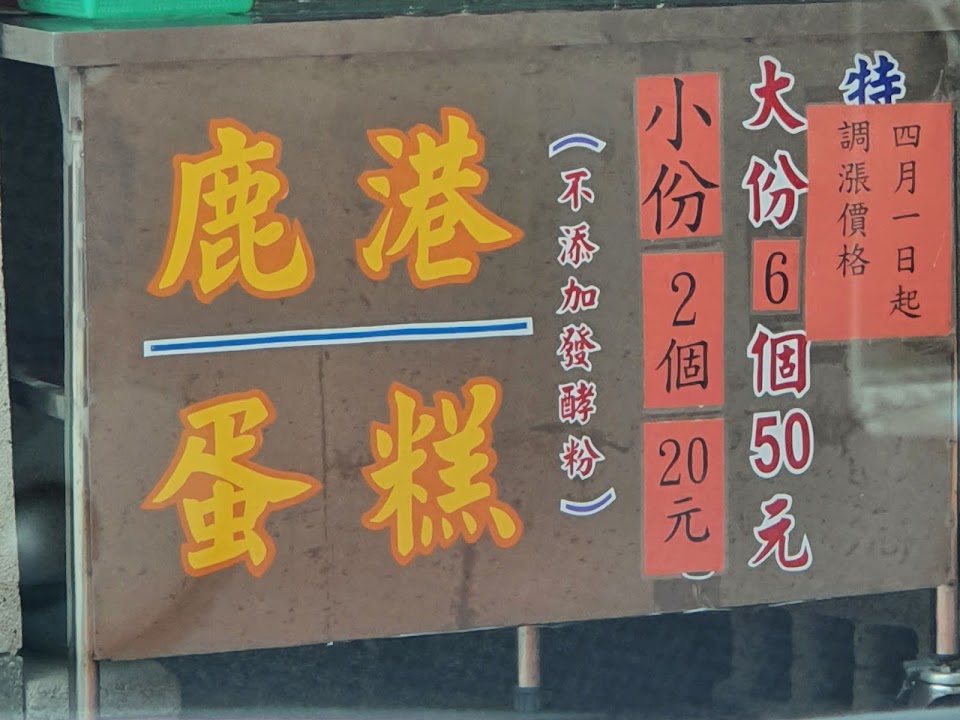 鹿港
蛋糕
特
四月一日起
調漲價格
大份6個50元
小份2個20元
(不添加發酵粉)